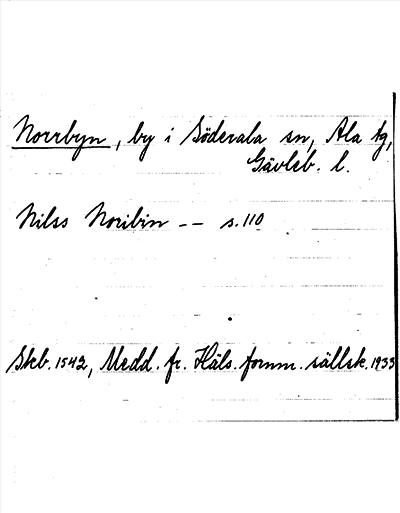 Norrbyn, by i Söderala sn, Ala tg,
Gävleb. l.
Nilss Noribin -- s. 110
Skb. 1542, Medd. fr. Häls. fornm. sällsk. 1933